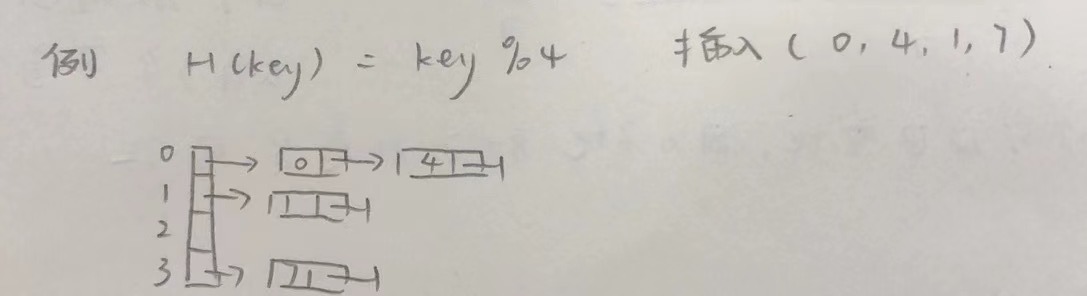 例 H(key) = key % 4 插入 ( 0, 4, 1, 7 )
0 0 4
1 1
2
3 7